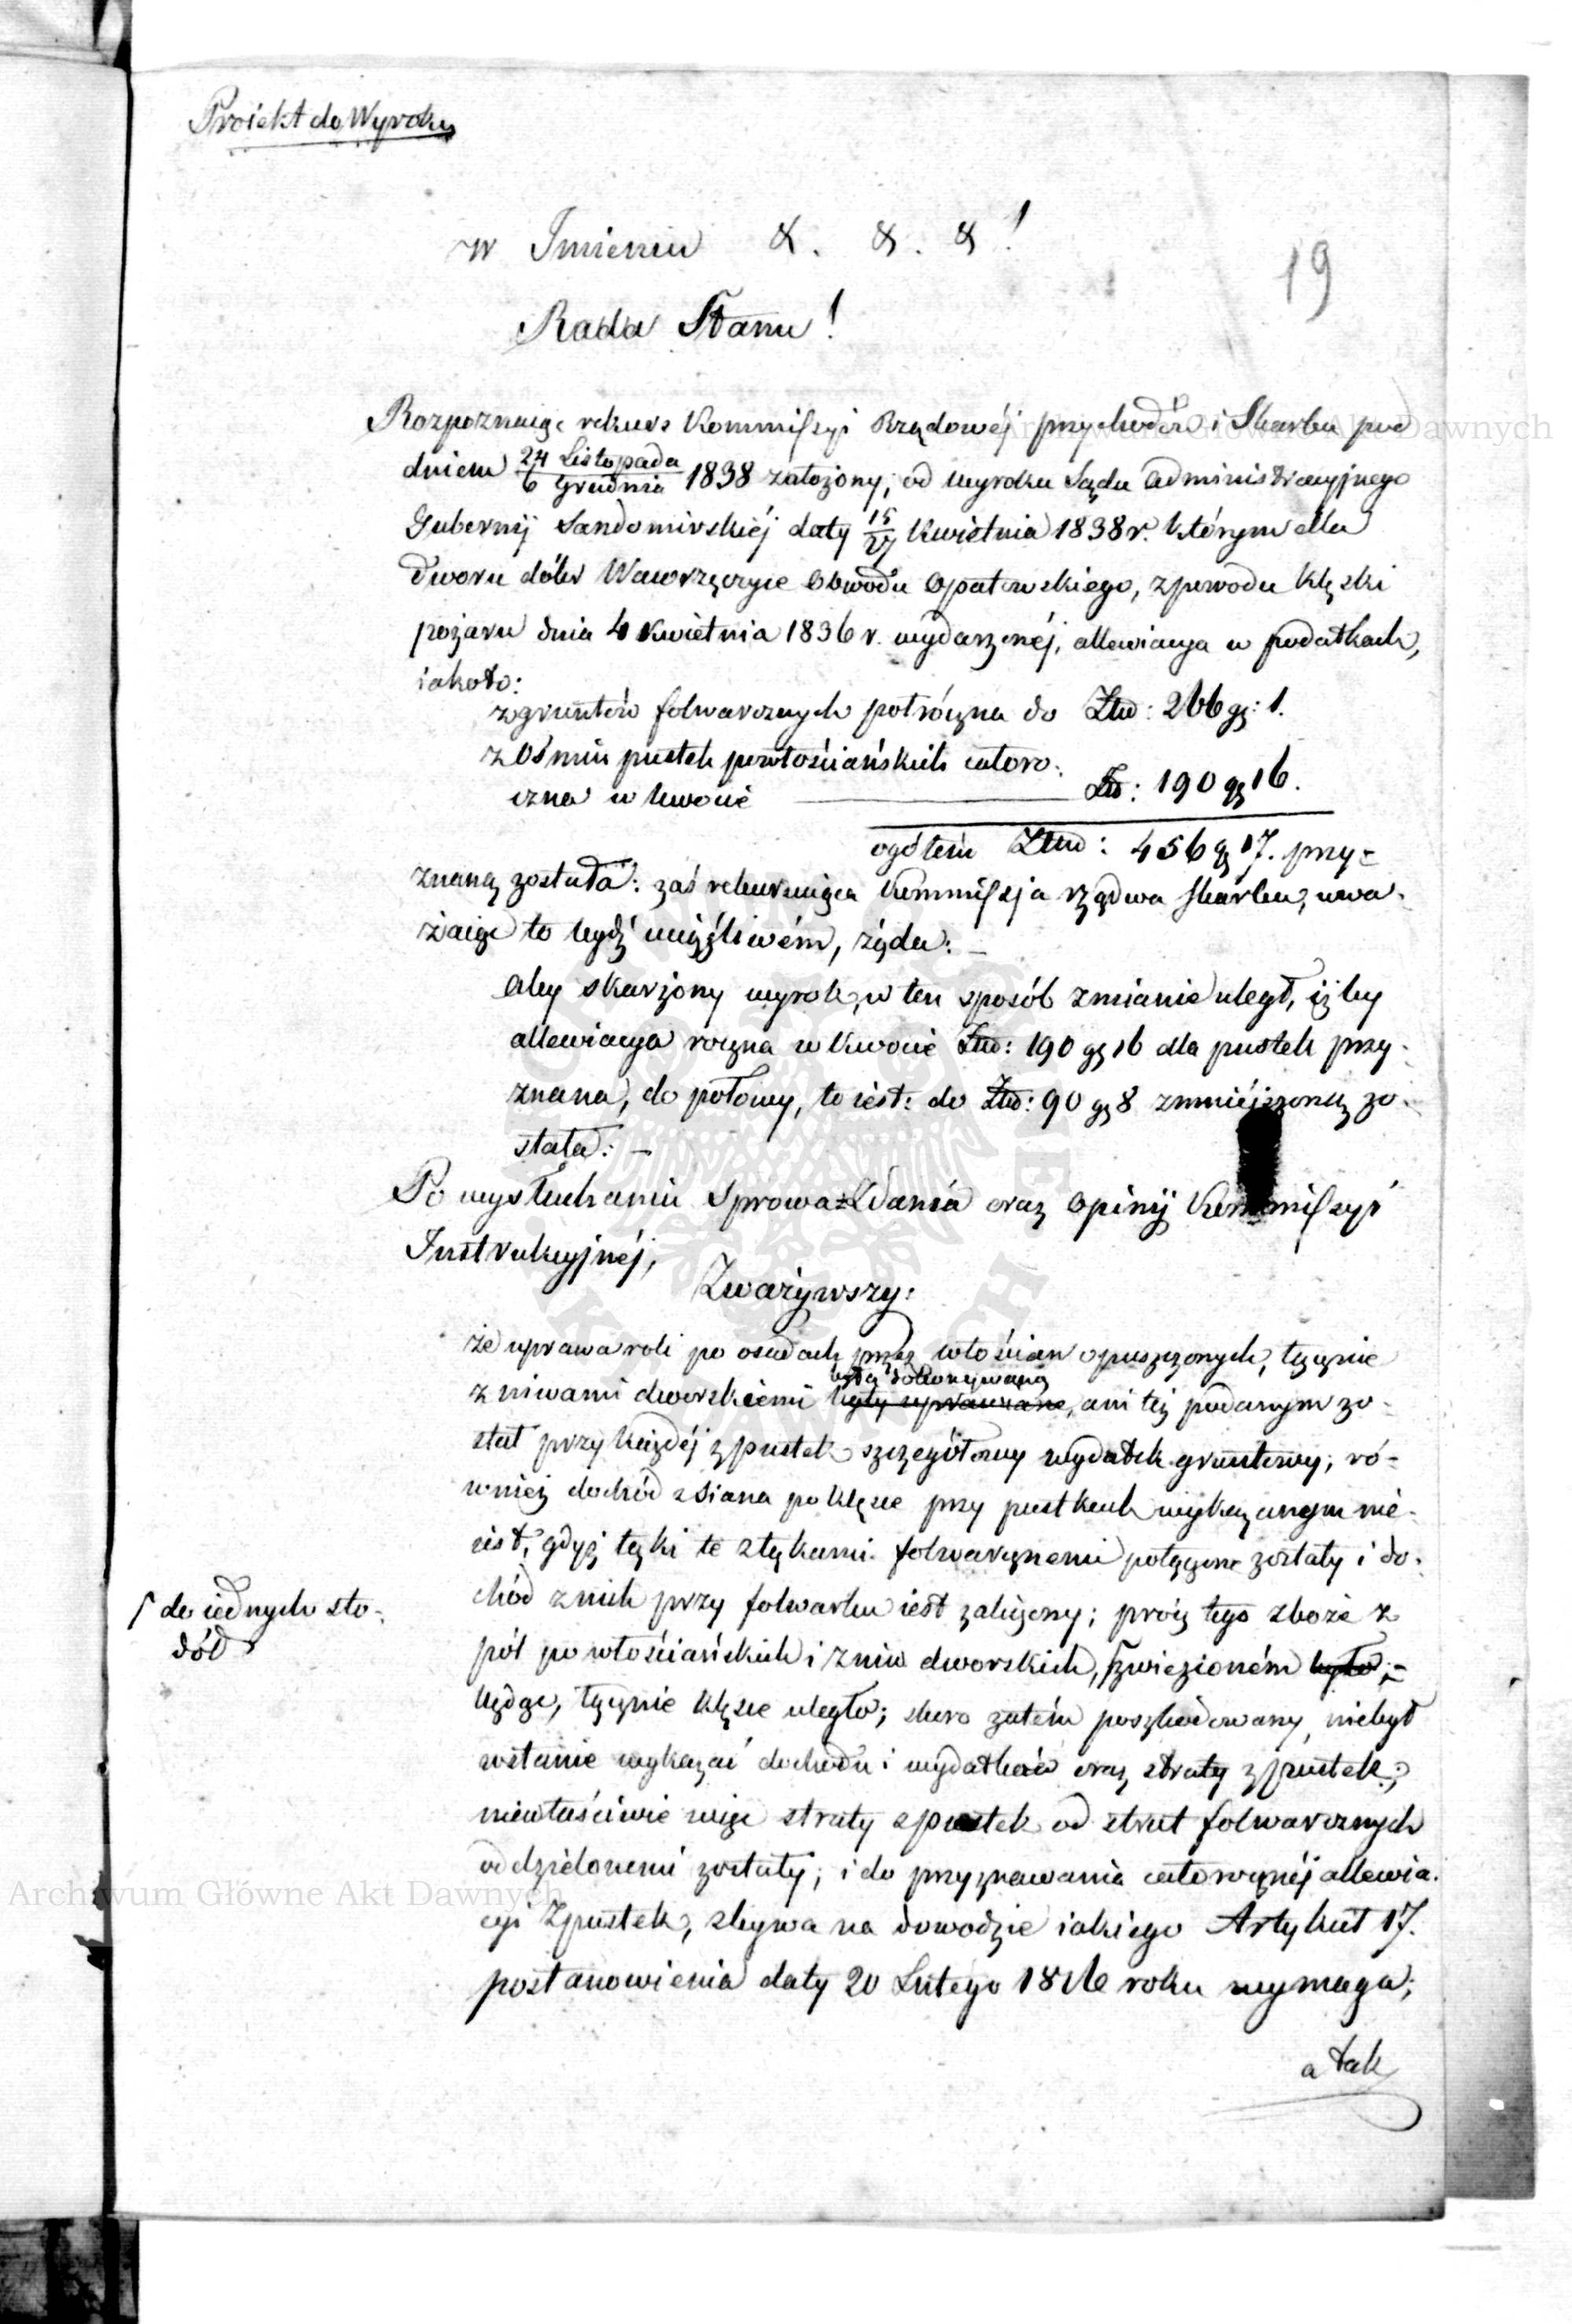 Proiekt do Wyroku
w Imieniu &. &. &!
19
Rada Stanu!
Rozpoznaiąc rekurs Kommissyi Rządowéj przychodów i Skarbu pod
dniem 24 Listopada / 6 Grudnia 1838 założony, od wyroku Sądu Administracyjnego
Gubernij Sandomirskiéj daty 15/27 Kwietnia 1838 r. którym dla
Dworu dóbr Wawrzęczyce Obwodu Opatowskiego, z powodu klęski
pożaru dnia 4 Kwietnia 1836 r. wydarzonéj, allewiacya w podatkach,
iakoto:
z gruntów folwarcznych potróczna do Złtd: 266 g: 1.
z Ośmiu pustek powłościańskich całoro-
czna w kwocie Złt: 190 gr 16.
ogółem Złtd: 456 gr 17. przy-
znaną została: zaś rekuruiąca Kommissja rządwa Skarbu, uwa-
żaiąc to bydź uciążliwém, żąda: –
Aby skarżony wyrok, w ten sposób zmianie uległ, iżby
allewiacya roczna w kwocie Złtd: 190 gr 16 dla pustek przy-
znana, do połowy, to iest: do Złtd: 90 gr 8 zmniéjszoną zo-
stała: –
Po wysłuchaniu Sprowazdania oraz Opinij Kommissyi
Instrukcyjnéj,
Zważywszy:
że uprawa roli po osadach przez włościan opuszczonych, łącznie
była dokonywaną
z niwami dworskiemi były uprawiane, ani też podanym zo-
stał przy każdéj z pustek szczegółowy wydatek gruntowy, ró-
wnież dochód z Siana po klęsce przy pustkach wykazanym nie-
iest, gdyż łąki te z łąkami folwarcznemi połączone zostały i do-
chód z nich przy folwarku iest zaliczony; prócz tego zboże z
pól powłościańskich i z niw dworskich, ⌈zwiezioném było,-
⌈ do iednych sto-
dół
będąc, łącznie klęsce uległo; skoro zatém poszkodowany niebył
wstanie wykazać dochodu i wydatków oraz straty z pustek;
niewłaściwie więc straty z pustek od strat folwarcznych
oddzielonemi zostały; i do przyznawania całorocznéj allewia-
cyi z pustek, zbywa na dowodzie iakiego Artykuł 17.
postanowienia daty 20 Lutego 1816 roku wymaga;
a tak
Archiwum Główne Akt Dawnych
Archiwum Główne Akt Dawnych